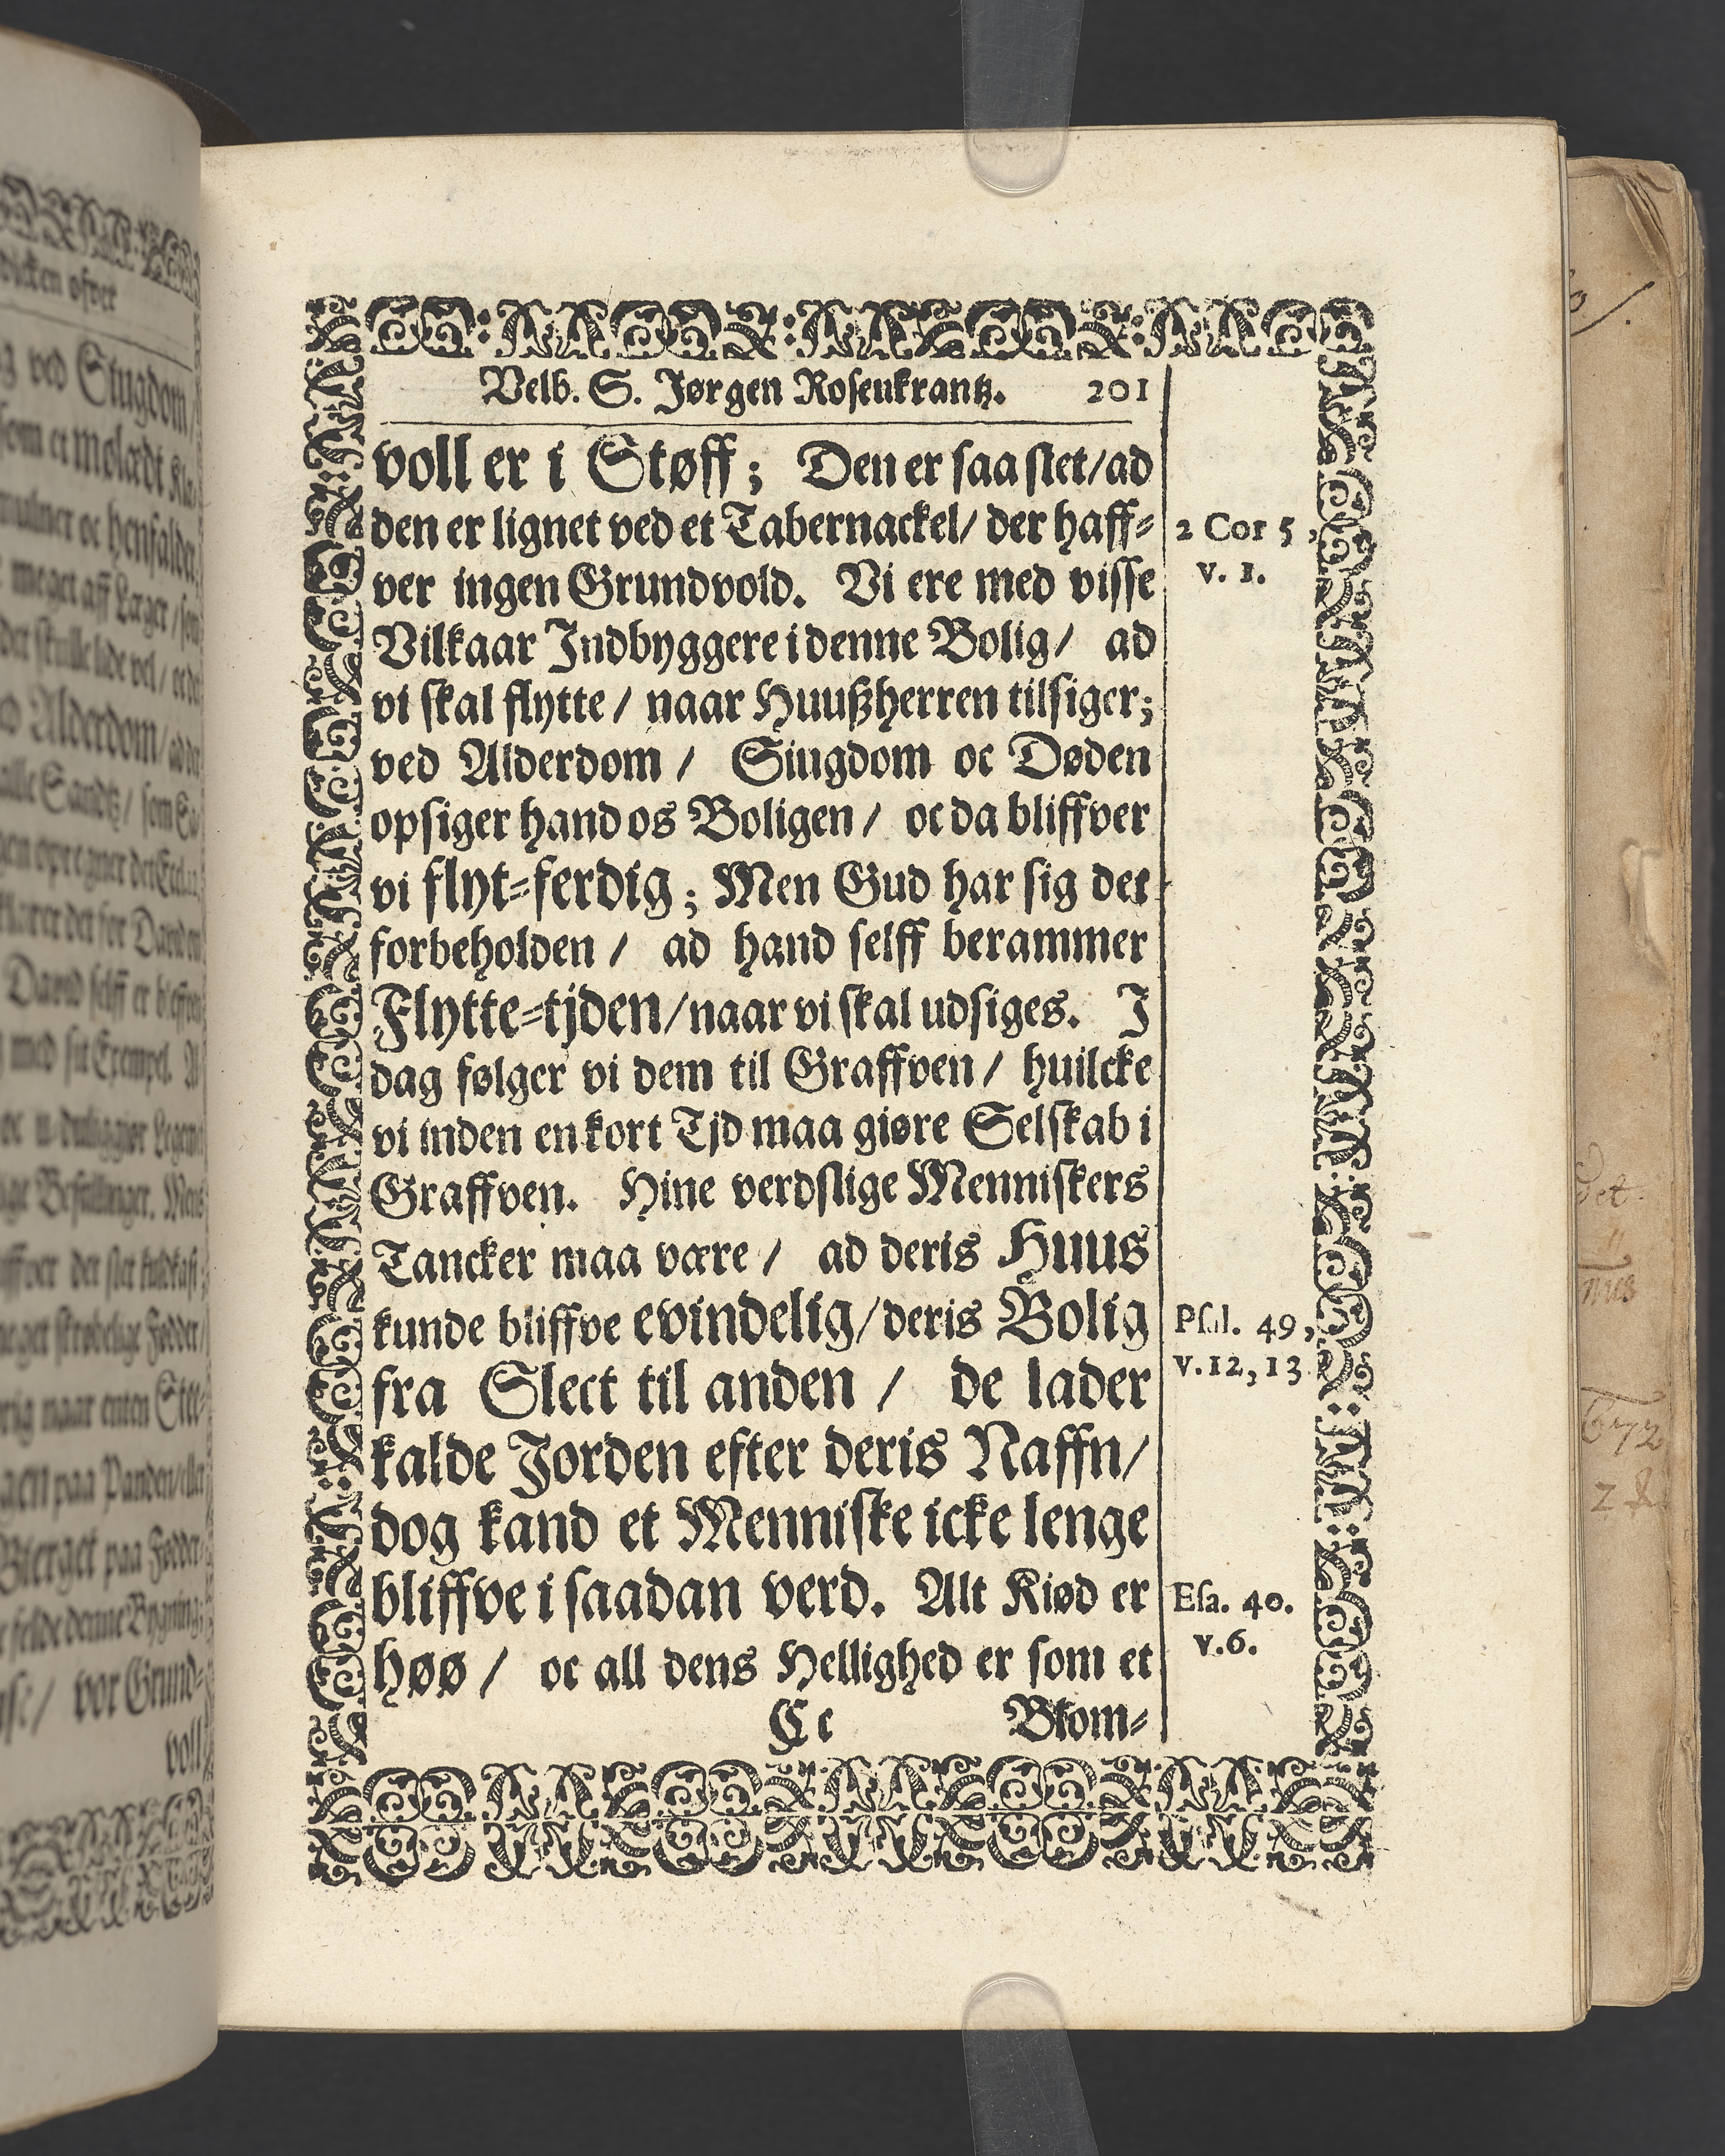 Velb. S. Jørgen Rosenkrantz. 201
voll er i Støff; Den er saa slet/ad
den er lignet ved et Tabernackel/ der haff-
ver ingen Grundvold. Vi ere med visse
Vilkaar Indbyggere i denne Bolig/ ad
vi skal flytte/ naar Huußherren tilsiger;
ved Alderdom/ Siugdom oc Døden
opsiger hand os Boligen/ oc da bliffver
vi flyt-ferdig; Men Gud har sig det
forbeholden/ ad hand selff berammer
Flytte-tjden/naar vi skal udsiges. I
dag følger vi dem til Graffven/ huilcke
vi inden en kort Tjd maa giøre Selskab i
Graffven. Hine verdslige Menniskers
Tancker maa være/ ad deris Huus
kunde bliffve evindelig/deris Bolig
fra Slect til anden/ de lader
kalde Jorden efter deris Naffn/
dog kand et Menniske icke lenge
bliffve i saadan verd. Alt Kiød er
høø/ oc all dens Hellighed er som et
Cc Blom-
2 Cor 5,
v. 1.
Psal. 49,
v.12,13
Esa. 40.
v.6.
ved Siugdom/
meget aff Læger/
Alderdom/
alle Sandtz/
med sit Exempel.
paa Panden/
Bierget paa Fødder
felde denne Bygning;
vor Grund-
voll